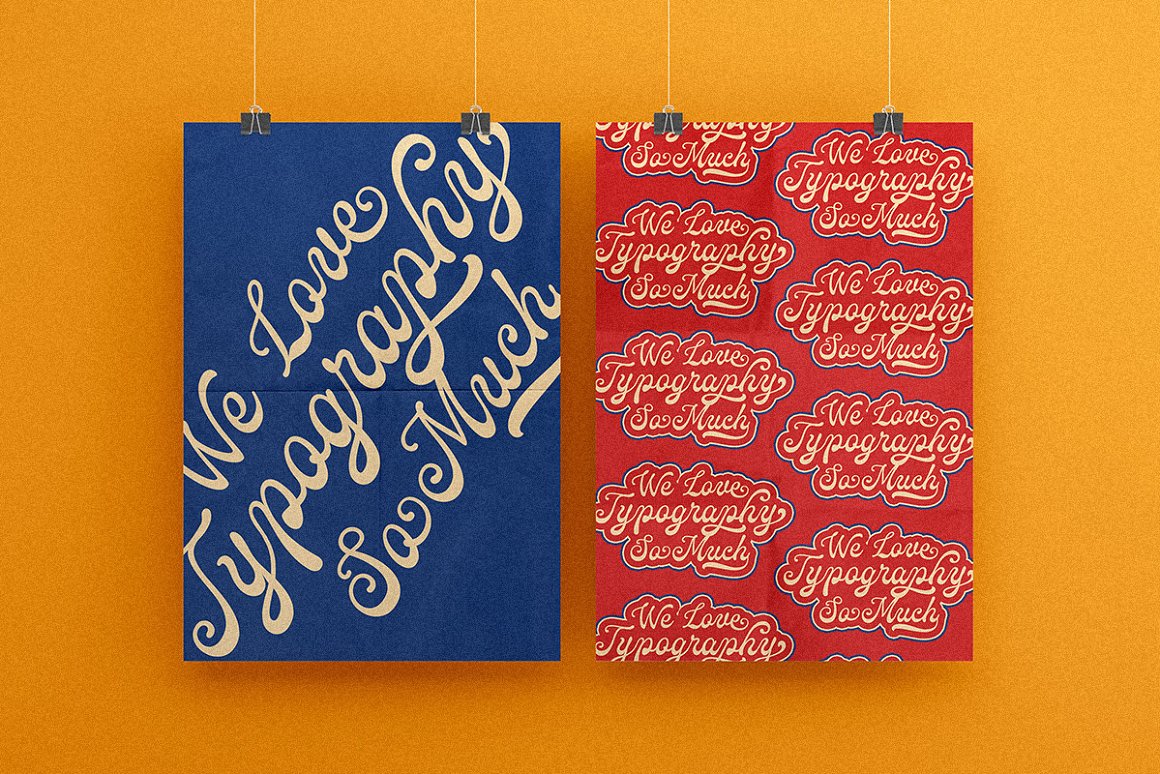 We Love
Typography
So Much
Typography
So Much
We Love
Typography
So Much
We Love
Typography
So Much
We Love
Typography
So Much
We Love
Typography
We Love
Typography
So Much
We Love
Typography
So Much
We Love
Typography
So Much
We Love
Typography
So Much